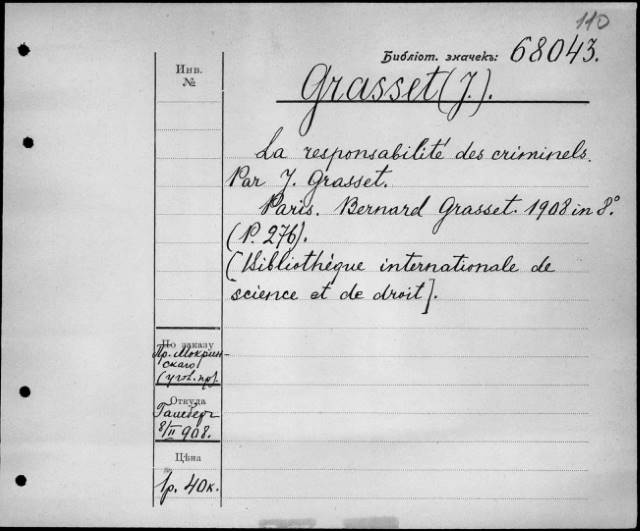 110
Библіот. значекъ: 68043.
Инв.
№
Grasset (J.).
La responsabilité des criminels.
Par J. Grasset.
Paris. Bernard Grasset. 1908 in 8°
(P. 276).
[Bibliothèque internationale de
science et de droit].
По заказу
Пр. Мокрин-
скаго
(угол. пр.).
Откуда
8/II 908.
Цѣна
1р. 40к.